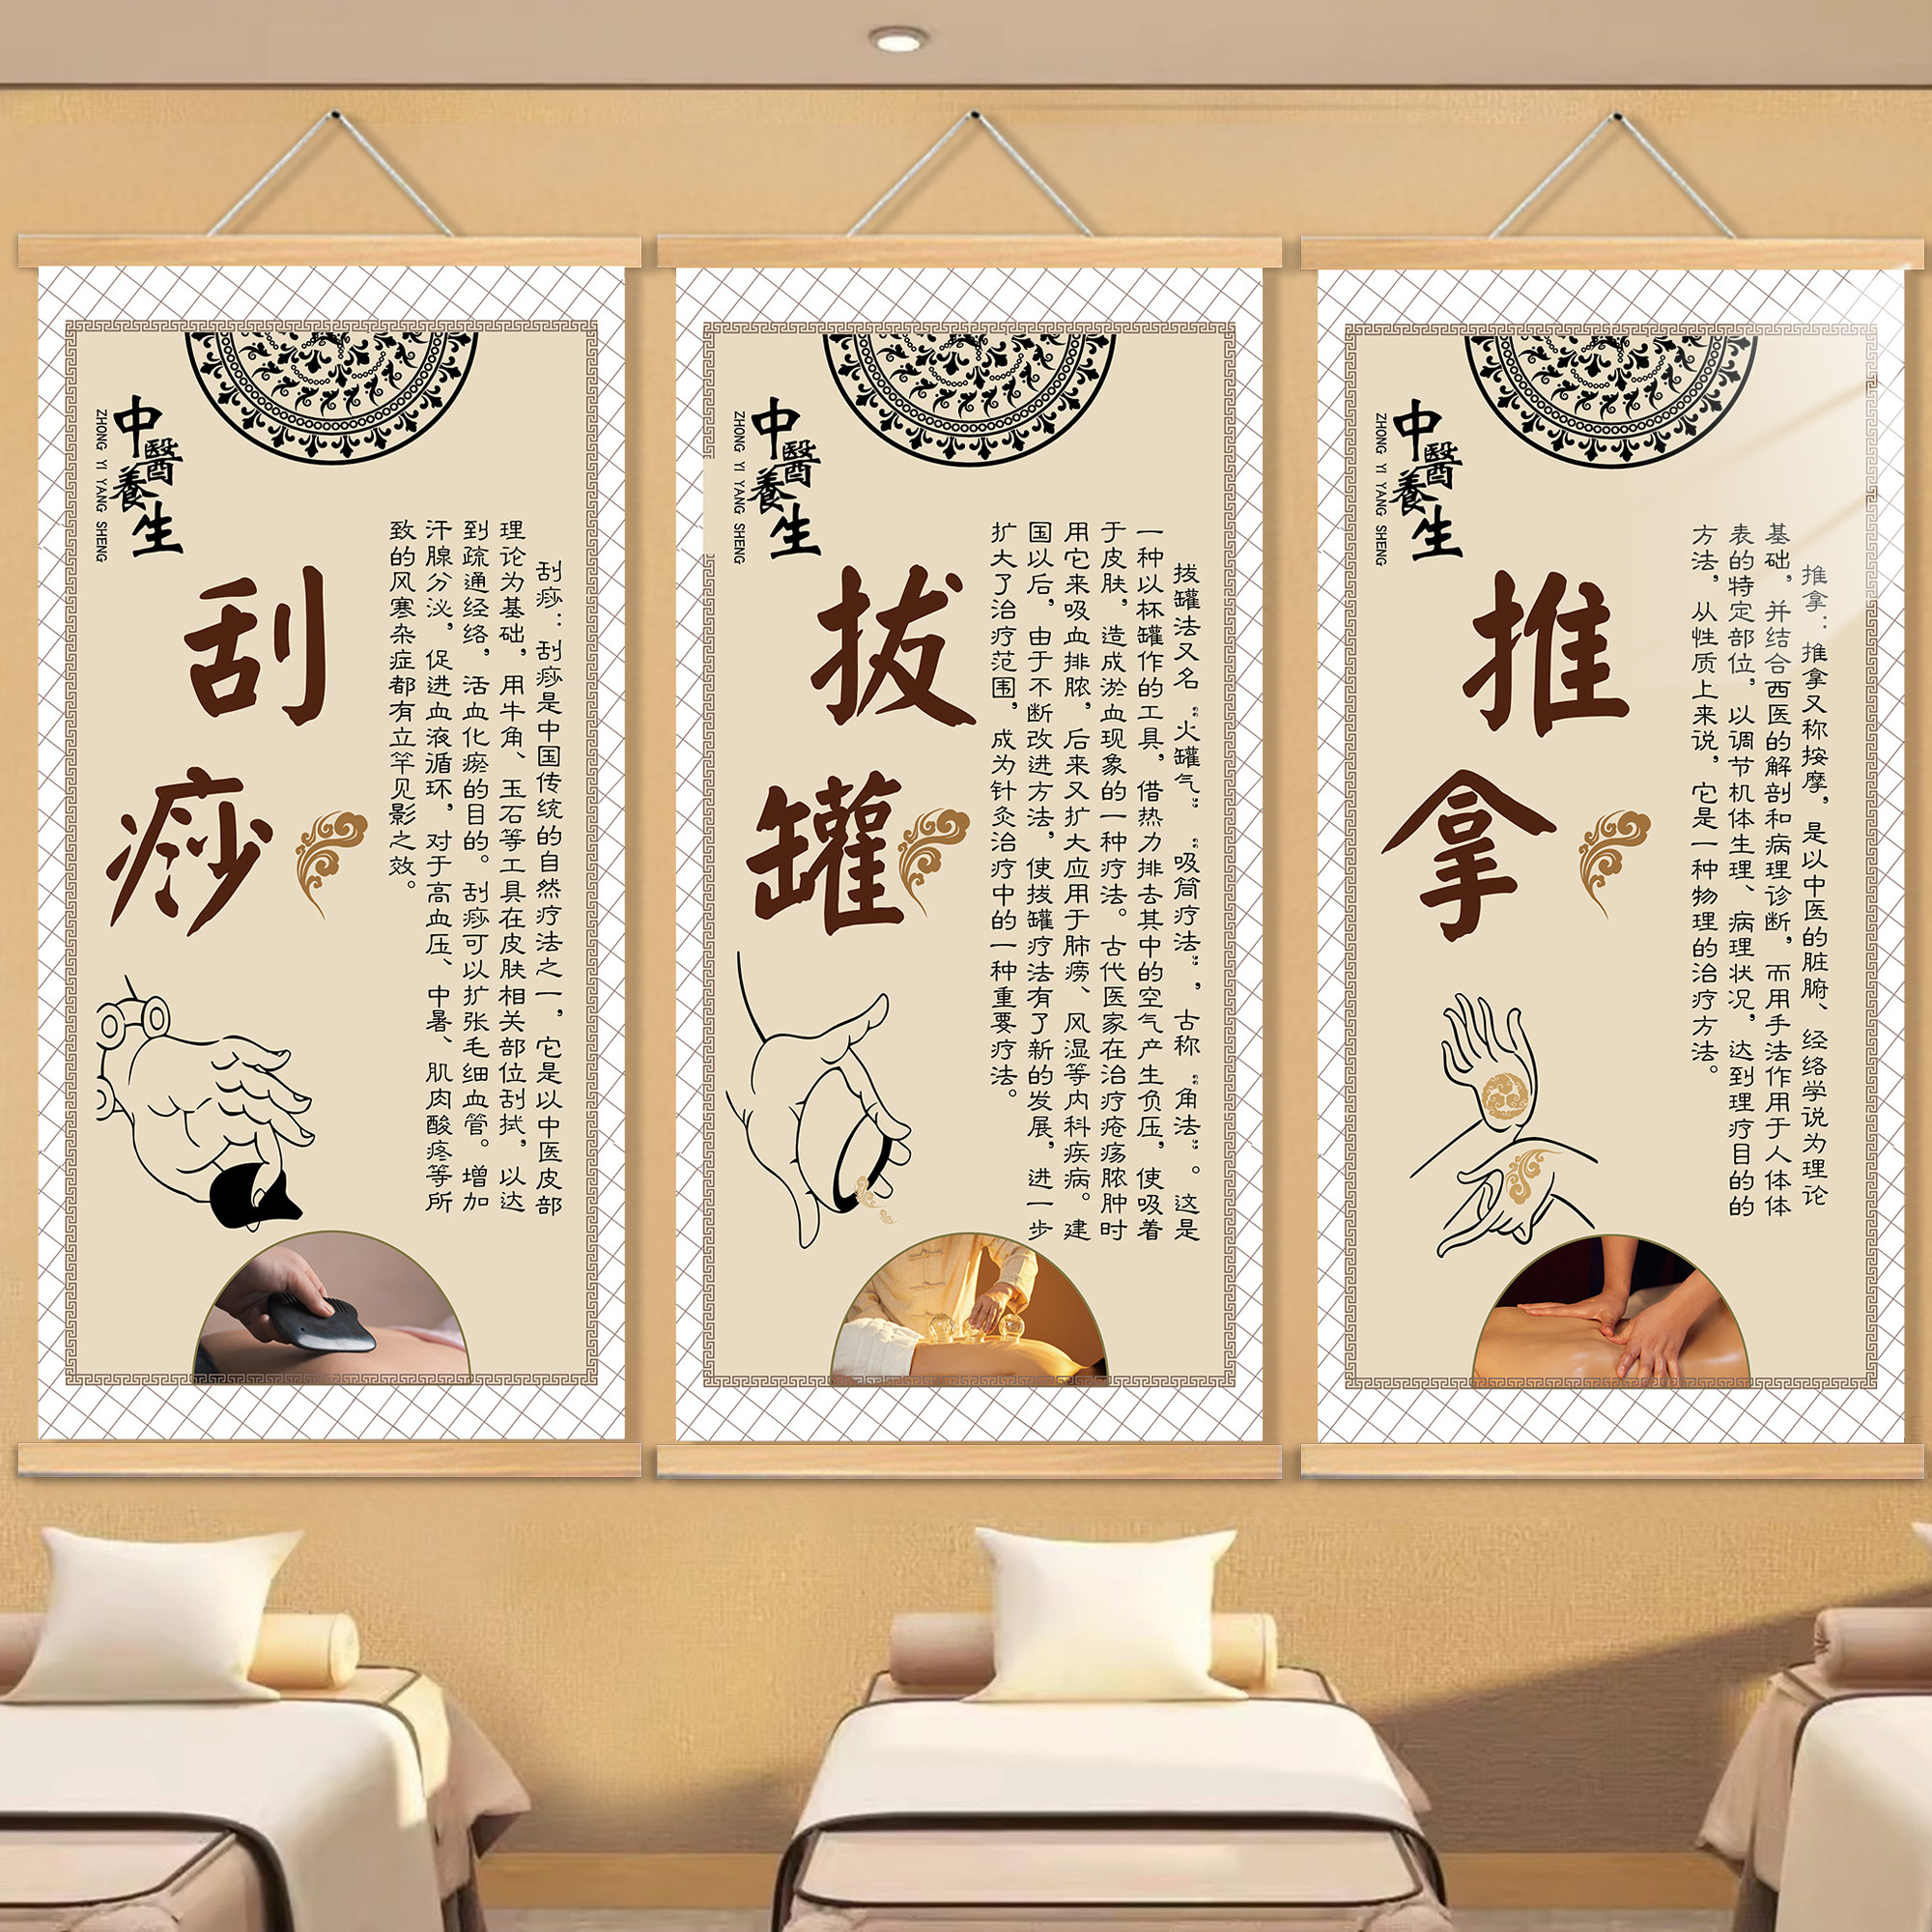 中醫養生
ZHONG YI YANG SHENG
刮痧
刮痧：刮痧是中国传统的自然疗法之一，它是以中医皮部
理论为基础，用牛角、玉石等工具在皮肤相关部位刮拭，以达
到疏通经络，活血化瘀的目的。刮痧可以扩张毛细血管。增加
汗腺分泌，促进血液循环，对于高血压、中暑、肌肉酸疼等所
致的风寒杂症都有立竿见影之效。
中醫養生
ZHONG YI YANG SHENG
拔罐
拔罐法又名“火罐气”“吸筒疗法”，古称“角法”。这是
一种以杯罐作的工具，借热力排去其中的空气产生负压，使吸着
于皮肤，造成淤血现象的一种疗法。古代医家在治疗疮疡脓肿时
用它来吸血排脓，后来又扩大应用于肺痨、风湿等内科疾病。建
国以后，由于不断改进方法，使拔罐疗法有了新的发展，进一步
扩大了治疗范围，成为针灸治疗中的一种重要疗法。
中醫養生
ZHONG YI YANG SHENG
推拿
推拿：推拿又称按摩，是以中医的脏腑、经络学说为理论
基础，并结合西医的解剖和病理诊断，而用手法作用于人体体
表的特定部位，以调节机体生理、病理状况，达到理疗目的的
方法，从性质上来说，它是一种物理的治疗方法。